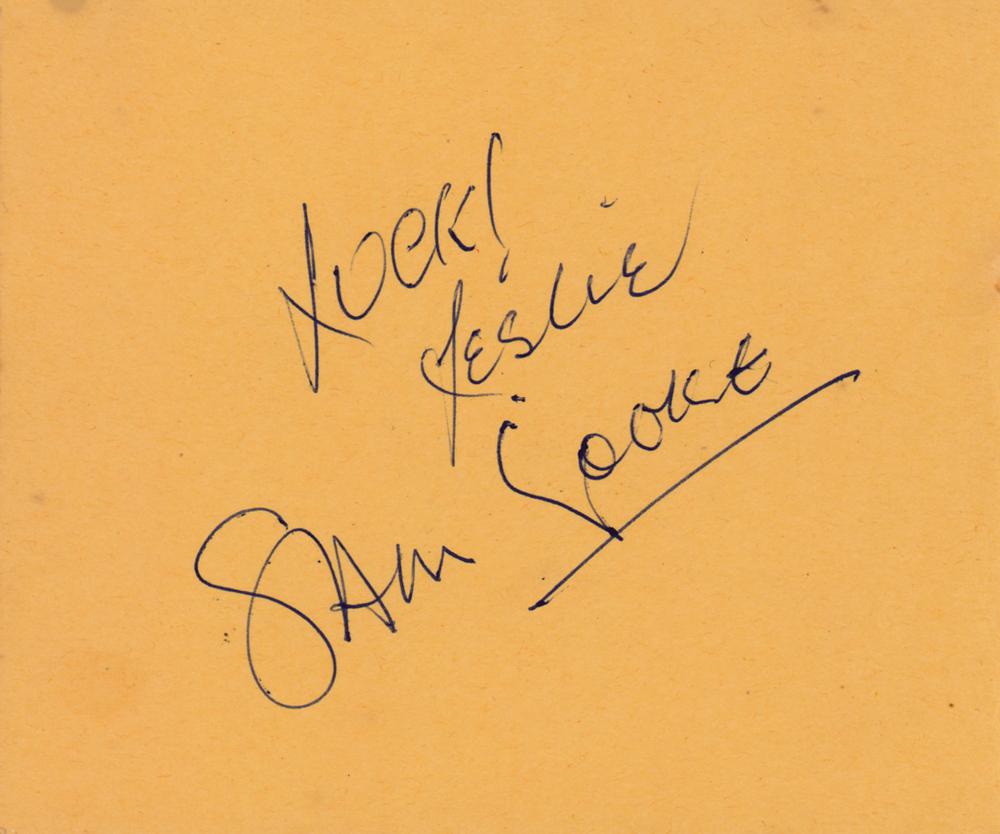 Luck!
Leslie
Sam Cooke